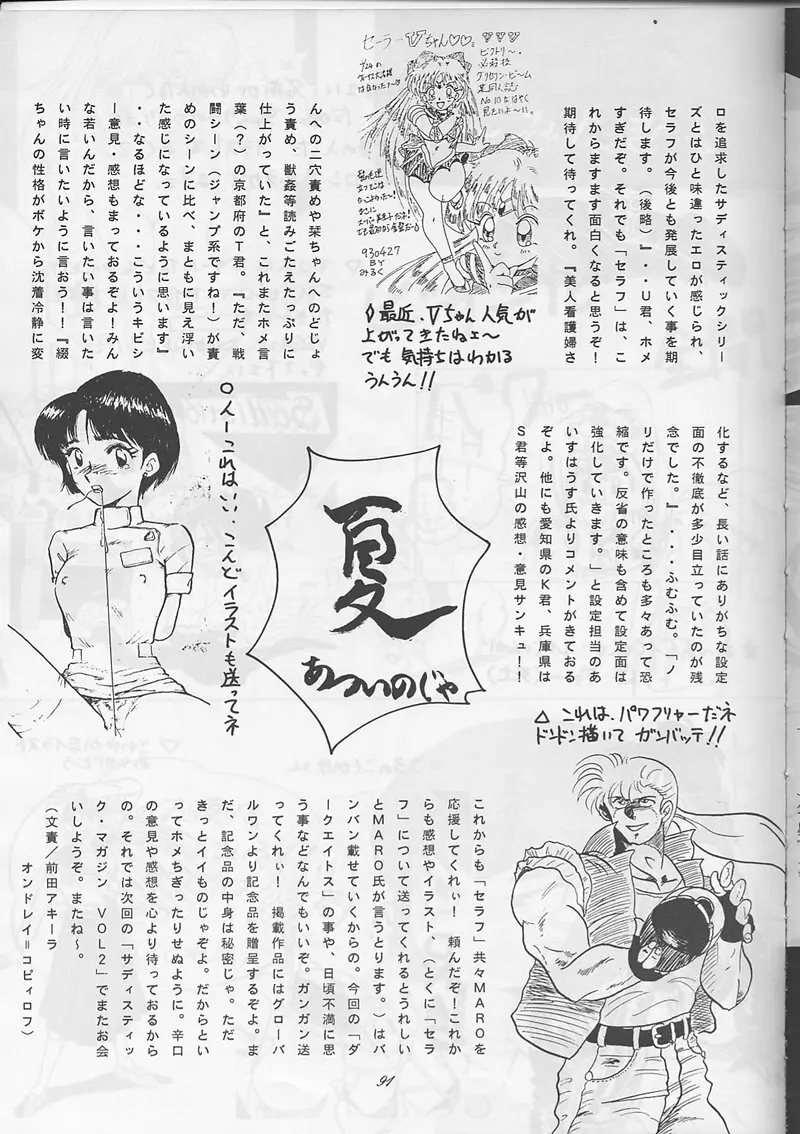 ロを追求したサディスティックシリー
ズとはひと味違ったエロが感じられ、
セラフが今後とも発展していく事を期
待します。（後略）』・・U君、ホメ
すぎだぞ。それでも「セラフ」は、こ
れからますます面白くなると思うぞ！
期待して待ってくれ。『美人看護婦さ
んへの二穴責めや栞ちゃんへのどじょ
う責め、獣姦等読みごたえたっぷりに
仕上がっていた』と、これまたホメ言
葉（？）の京都府のT君。『ただ、戦
闘シーン（ジャンプ系ですね！）が責
めのシーンに比べ、まともに見え浮い
た感じになっているように思います』
・・なるほどな・・・こういうキビシ
ー意見・感想もまっておるぞよ！みん
な若いんだから、言いたい事は言いた
い時に言いたいように言おう！！『綴
ちゃんの性格がボケから沈着冷静に変
セーラーVちゃん♡♡
ビクトリー・
必殺技
No.10
930427
BY
みるく
◊最近、Vちゃん人気が
上がってきたねェ〜
でも気持ちはわかる
うんうん!!
化するなど、長い話にありがちな設定
面の不徹底が多少目立っていたのが残
念でした。』・・・ふむふむ。「ノ
リだけで作ったところも多々あって恐
縮です。反省の意味も含めて設定面は
強化していきます。」と設定担当のあ
いすはうす氏よりコメントがきておる
ぞよ。他にも愛知県のK君、兵庫県は
S君等沢山の感想・意見サンキュ！！
夏
あついのじゃ
○人ーこれはいい、こんどイラストも送ってネ
△これは、パワフリャーだネ
ドンドン描いてガンバッテ!!
これからも「セラフ」共々MAROを
応援してくれぃ！頼んだぞ！これか
らも感想やイラスト、（とくに「セラ
フ」について送ってくれるとうれしい
とMARO氏が言うとります。）はバ
ンバン載せていくからの。今回の「ダ
ークエイトス」の事や、日頃不満に思
う事などなんでもいいぞ。ガンガン送
ってくれぃ！掲載作品にはグローバ
ルワンより記念品を贈呈するぞよ。ま
だ、記念品の中身は秘密じゃ。ただ
きっとイイものじゃぞよ。だからとい
ってホメちぎったりせぬように。辛口
の意見や感想を心より待っておるから
の。それでは次回の「サディスティッ
ク・マガジン VOL2」でまたお会
いしようぞ。またね〜。
（文責／前田アキーラ
オンドレイ＝コピィロフ）
91